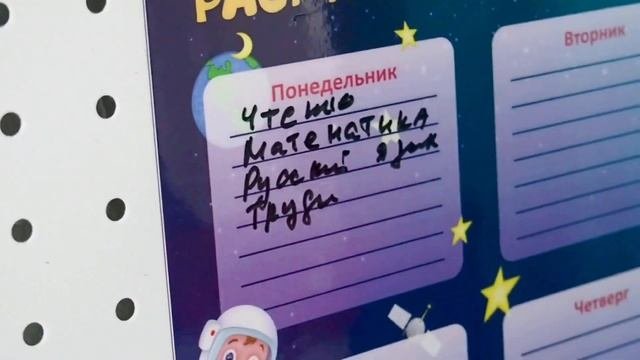 Понедельник
Чтение
Математика
Русский язык
Труды
Вторник
Четверг